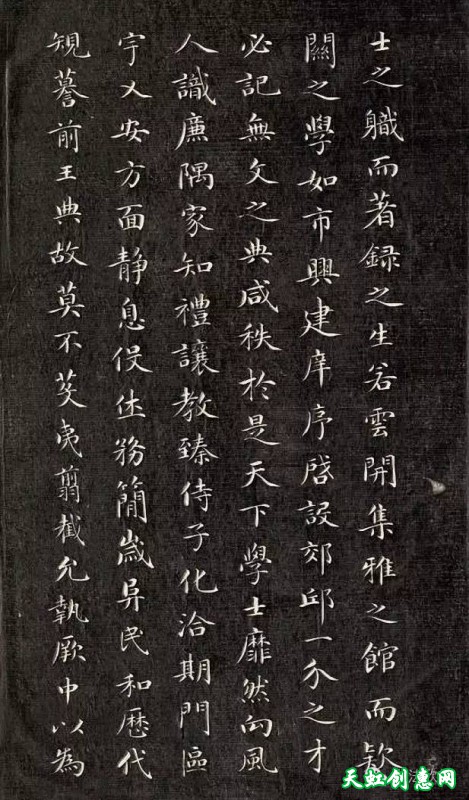 士之職而著録之生若雲開集雅之館而欵
關之學如市興建庠序啓設郊邱一介之才
必記無文之典咸秩於是天下學士靡然向風
人識廉隅家知禮讓教臻侍子化洽期門區
宇乂安方面静息役休務簡歲阜民和歷代
規摹前王典故莫不芟夷翦截允執厥中以為
天虹创意网